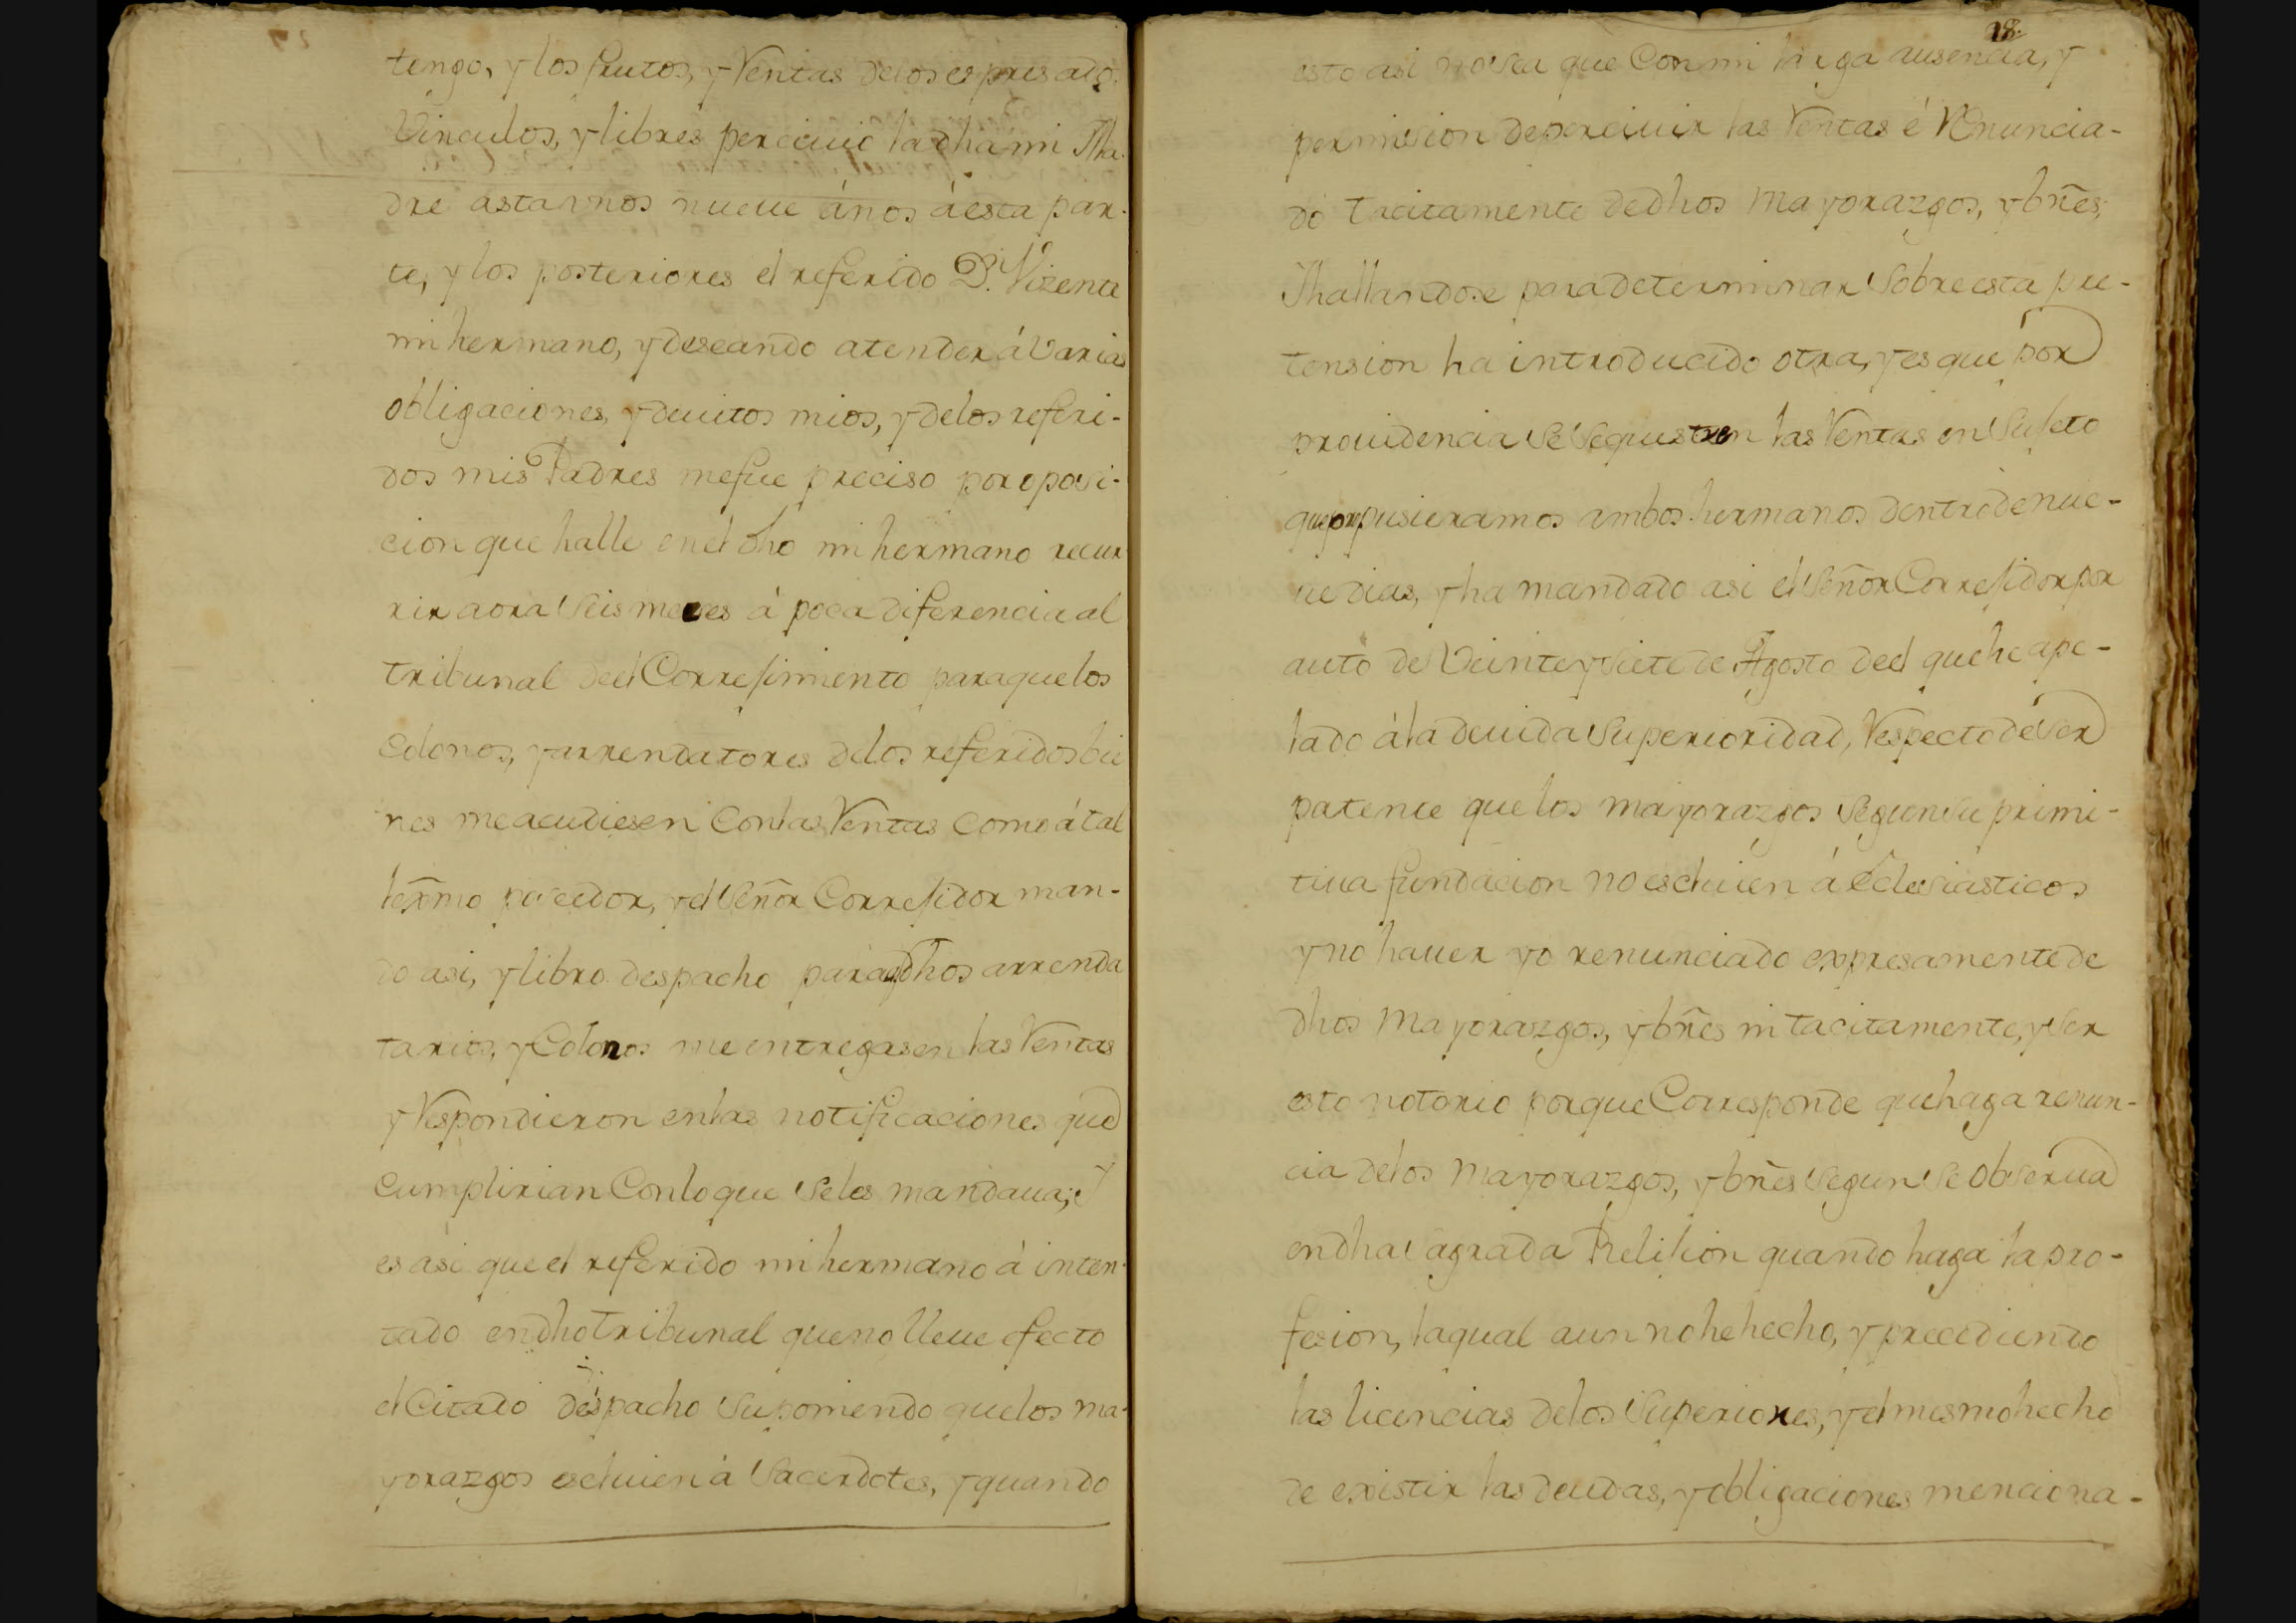 tengo, y los frutos, y Rentas de los espresados
Vinculos, y libres perciuio la dha mi Ma-
dre asta unos nueue años á esta par-
te, y los posteriores el referido D. Vizente
mi hermano, y deseando atender á varias
obligaciones, y deuitos mios, y de los referi-
dos mis Padres me fue preciso por oposi-
cion que halle en el dho mi hermano recur-
rir aora seis meses á poca diferencia al
tribunal deel Correjimiento para que los
Colonos, y arrendatores de los referidos bie
nes me acudiesen Con las Rentas como á tal
lexmo poseedor, y el Señor Correjidor man-
do asi, y libro despacho para q dhos arrenda
tarios, y Colonos me entregasen las Rentas
y Respondieron en las notificaciones que
Cumplirian Con lo que se les mandaua; Y
es asi que el referido mi hermano á inten-
tado en dho tribunal que no lleue efecto
el Citado despacho suponiendo que los ma-
yorazgos escluien á Sacerdotes, y quando
18.
esto asi no sea que Con mi larga ausencia, y
permision de perciuir las Rentas é Renuncia-
do tacitamente de dhos mayorazgos, y bñes,
Y hallandose para determinar sobre esta pre-
tension ha introducido otra, y es que por
prouidencia se sequestren las Rentas en sujeto
que propusieramos ambos hermanos dentro de nue-
ue dias, y ha mandado asi el Señor Correjidor por
auto de Veinte y siete de Agosto deel que he ape-
lado á la deuida Superioridad, Respecto de ser
patente que los mayorazgos segun su primi-
tiua fundacion no escluien á Eclesiasticos
y no hauer yo renunciado expresamente de
dhos mayorazgos, y bñes ni tacitamente, y ser
esto notorio porque Corresponde que haga renun-
cia de los mayorazgos, y bñes segun se obserua
en dha sagrada Relijion quando haga la pro-
fesion, la qual aun no he hecho, y precediendo
las licencias de los Superiores, y el mesmo hecho
de existir las deudas, y obligaciones menciona-